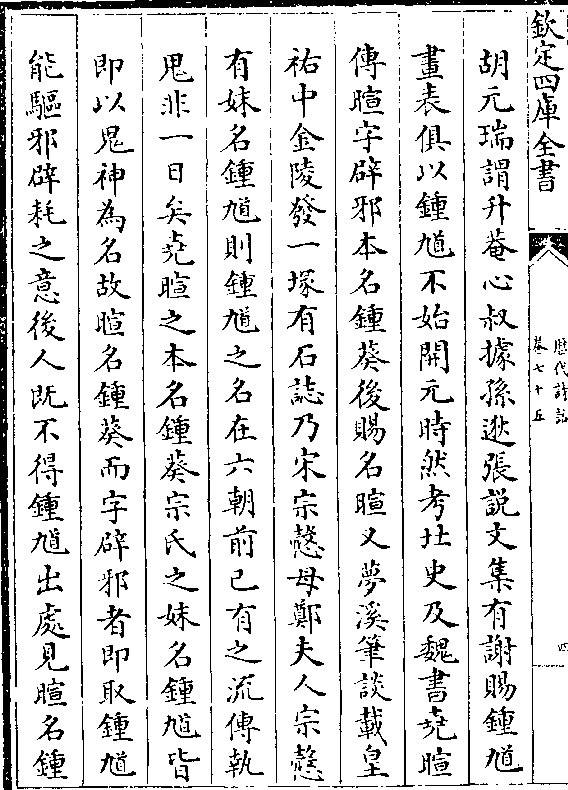 欽定四庫全書
歴代詩話
卷七十五
四
胡元瑞謂升菴心叔據孫逖張説文集有謝賜鍾馗
畫表俱以鍾馗不始開元時然考北史及魏書堯暄
傳暄字辟邪本名鍾葵後賜名暄又夢溪筆談載皇
祐中金陵發一塚有石誌乃宋宗慤母鄭夫人宗慤
有妹名鍾馗則鍾馗之名在六朝前已有之流傳執
鬼非一日矣堯暄之本名鍾葵宗氏之妹名鍾馗皆
即以鬼神為名故暄名鍾葵而字辟邪者即取鍾馗
能驅邪辟耗之意後人既不得鍾馗出處見暄名鍾